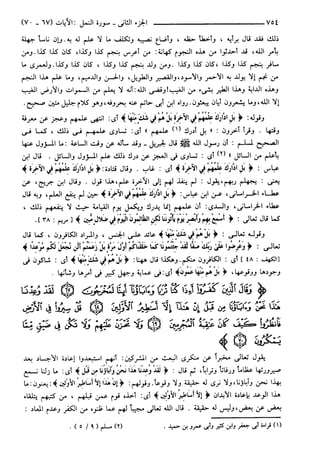 ٧٥٤ الجزء الثانى - سورة النمل : الآيات (٦٧ - ٧٠)
ذلك فقد قال برأيه ، وأخطأ حظه ، وأضاع نصيبه وتكلف ما لا علم له به. وإن ناساً جهلة
بأمر الله، قد أحدثوا من هذه النجوم كهانة: من أعرس بنجم كذا وكذا، كان كذا كذا. ومن
سافر بنجم كذا وكذا، كان كذا وكذا. ومن ولد بنجم كذا وكذا ، كان كذا وكذا. ولعمرى ما
من نجم إلا يولد به الأحمر والأسود، والقصير والطويل، والحسن والدميم، وما علم هذا النجم
وهذه الدابة وهذا الطير بشىء من الغيب! وقضى الله: أنه لا يعلم من فى السموات والأرض الغيب
إلا الله، وما يشعرون أيان يبعثون. رواه ابن أبى حاتم عنه بحروفه، وهو كلام جليل متين صحيح.
وقوله: ﴿ بَلِ ادَّارَكَ عِلْمُهُمْ فِي الْآخِرَةِ بَلْ هُمْ فِي شَكٍّ مِّنْهَا ﴾ أى: انتهى علمهم وعجز عن معرفة
وقتها . وقرأ آخرون : « بل أدرك (١) علمهم » أى: تساوى علمهم فى ذلك ، كما فى
الصحيح لمسلم : أن رسول الله ﷺ قال لجبريل ـ وقد سأله عن وقت الساعة : ما المسؤول عنها
بأعلم من السائل (٢) أى : تساوى فى العجز عن درك ذلك علم المسؤول والسائل . قال ابن
عباس : ﴿ بَلِ ادَّارَكَ عِلْمُهُمْ فِي الْآخِرَةِ ﴾ أى : غاب . وقال قتادة: ﴿ بَلِ ادَّارَكَ عِلْمُهُمْ فِي الْآخِرَةِ ﴾
يعنى : يجهلهم ربهم، يقول : لم ينفذ لهم إلى الآخرة علم، هذا قول . وقال ابن جريج، عن
عطاء الخراسانى، عن ابن عباس: ﴿ بَلْ أدرك عِلْمُهُمْ فِي الْآخِرَةِ ﴾ حين لم ينفع العلم، وبه قال
عطاء الخراسانى، والسدى: أن علمهم إنما يدرك ويكمل يوم القيامة حيث لا ينفعهم ذلك ،
كما قال تعالى : ﴿ أَسْمِعْ بِهِمْ وَأَبْصِرْ يَوْمَ يَأْتُونَنَا لَكِنِ الظَّالِمُونَ الْيَوْمَ فِي ضَلَالٍ مُّبِينٍ ﴾ [ مريم : ٣٨ ] .
وقوله تعالى : ﴿ بَلْ هُمْ فِي شَكٍّ مِّنْهَا ﴾ عائد على الجنس ، والمراد الكافرون ، كما قال
تعالى : ﴿ وَعُرِضُوا عَلَىٰ رَبِّكَ صَفًّا لَّقَدْ جِئْتُمُونَا كَمَا خَلَقْنَاكُمْ أَوَّلَ مَرَّةٍ بَلْ زَعَمْتُمْ أَلَّن نَّجْعَلَ لَكُم مَّوْعِدًا ﴾
[الكهف : ٤٨ ] أى : الكافرون منكم. وهكذا قال ههنا: ﴿ بَلْ هُمْ فِي شَكٍّ مِّنْهَا ﴾ أى : شاكون فى
وجودها ووقوعها، ﴿ بَلْ هُم مِّنْهَا عَمُونَ ﴾ أى: فى عماية وجهل كبير فى أمرها وشأنها .
﴿ وَقَالَ الَّذِينَ كَفَرُوا أَءِذَا كُنَّا تُرَابًا وَآبَاؤُنَا أَئِنَّا لَمُخْرَجُونَ (٦٧) لَقَدْ وُعِدْنَا
هَٰذَا نَحْنُ وَآبَاؤُنَا مِن قَبْلُ إِنْ هَٰذَا إِلَّا أَسَاطِيرُ الْأَوَّلِينَ (٦٨) قُلْ سِيرُوا فِي الْأَرْضِ
فَانظُرُوا كَيْفَ كَانَ عَاقِبَةُ الْمُجْرِمِينَ (٦٩) وَلَا تَحْزَنْ عَلَيْهِمْ وَلَا تَكُن فِي ضَيْقٍ مِّمَّا
يَمْكُرُونَ (٧٠) ﴾
يقول تعالى مخبراً عن منكرى البعث من المشركين: أنهم استبعدوا إعادة الأجساد بعد
صيرورتها عظاماً ورفاتاً وتراباً، ثم قال : ﴿ لَقَدْ وُعِدْنَا هَٰذَا نَحْنُ وَآبَاؤُنَا مِن قَبْلُ ﴾ أى: ما زلنا نسمع
بهذا نحن وآباؤنا، ولا نرى له حقيقة ولا وقوعاً. وقولهم: ﴿ إِنْ هَٰذَا إِلَّا أَسَاطِيرُ الْأَوَّلِينَ ﴾: يعنون: ما
هذا الوعد بإعادة الأبدان ﴿ إِلَّا أَسَاطِيرُ الْأَوَّلِينَ ﴾ أى: أخذه قوم عمن قبلهم ، من كتبهم يتلقاه
بعض عن بعض، وليس له حقيقة . قال الله تعالى مجيباً لهم عما ظنوه من الكفر وعدم المعاد :
(١) قراءة أبى جعفر وابن كثير وأبى عمرو بن حميد . (٢) مسلم ( ٩ / ٥ ) .